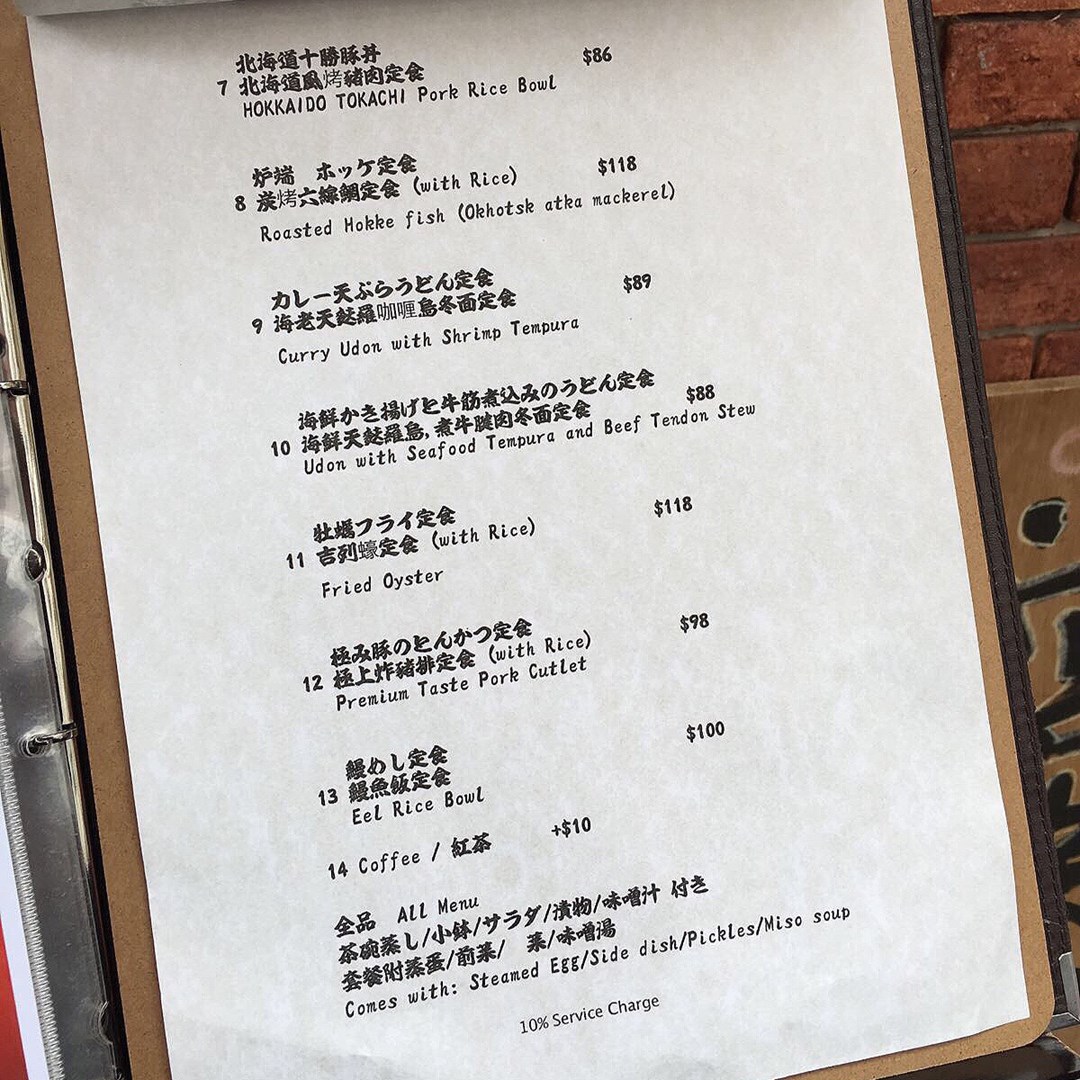 北海道十勝豚丼 $86
7 北海道風烤豬肉定食
HOKKAIDO TOKACHI Pork Rice Bowl
炉端 ホッケ定食 $118
8 炭烤六線鯛定食 (with Rice)
Roasted Hokke fish (Okhotsk atka mackerel)
カレー天ぷらうどん定食 $89
9 海老天麩羅咖喱烏冬面定食
Curry Udon with Shrimp Tempura
海鮮かき揚げと牛筋煮込みのうどん定食 $88
10 海鮮天麩羅烏,煮牛腱肉冬面定食
Udon with Seafood Tempura and Beef Tendon Stew
牡蠣フライ定食 $118
11 吉列蠔定食 (with Rice)
Fried Oyster
極み豚のとんかつ定食 $98
12 極上炸豬排定食 (with Rice)
Premium Taste Pork Cutlet
鰻めし定食 $100
13 鰻魚飯定食
Eel Rice Bowl
14 Coffee / 紅茶 +$10
全品 All Menu
茶碗蒸し/小鉢/サラダ/漬物/味噌汁 付き
套餐附蒸蛋/前菜/ 菜/味噌湯
Comes with: Steamed Egg/Side dish/Pickles/Miso soup
10% Service Charge